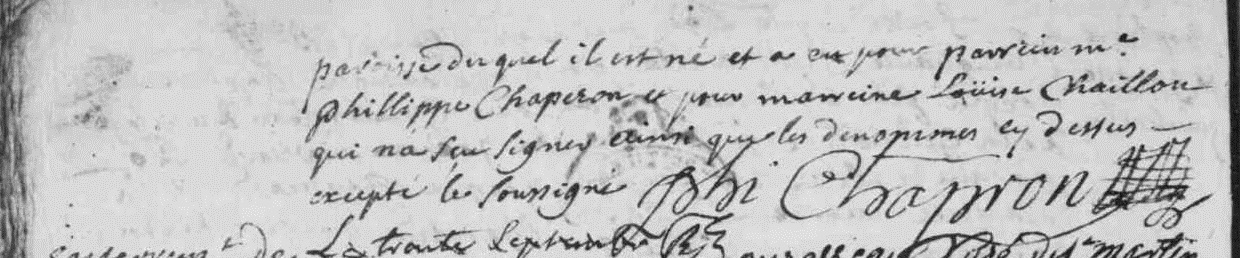 paroisse duquel il est né et a eu pour parrein mr
phillippe Chaperon et pour marreine Loüise Chaillou
qui na seu signer ainsi que les denommes cy dessus
excepté le soussigné phi Chapron
Le trente septembre